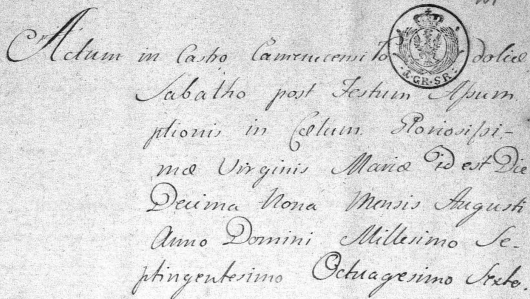 Actum in Castro Camenecensi Po doliæ
Sabatho post Festum Assum
ptionis in Cœlum Gloriosissi-
mæ Virginis Mariæ id est Die
Decima Nona Mensis Augusti
Anno Domini Millesimo Se-
ptingentesimo Octuagesimo Sexto.
GR·SR·